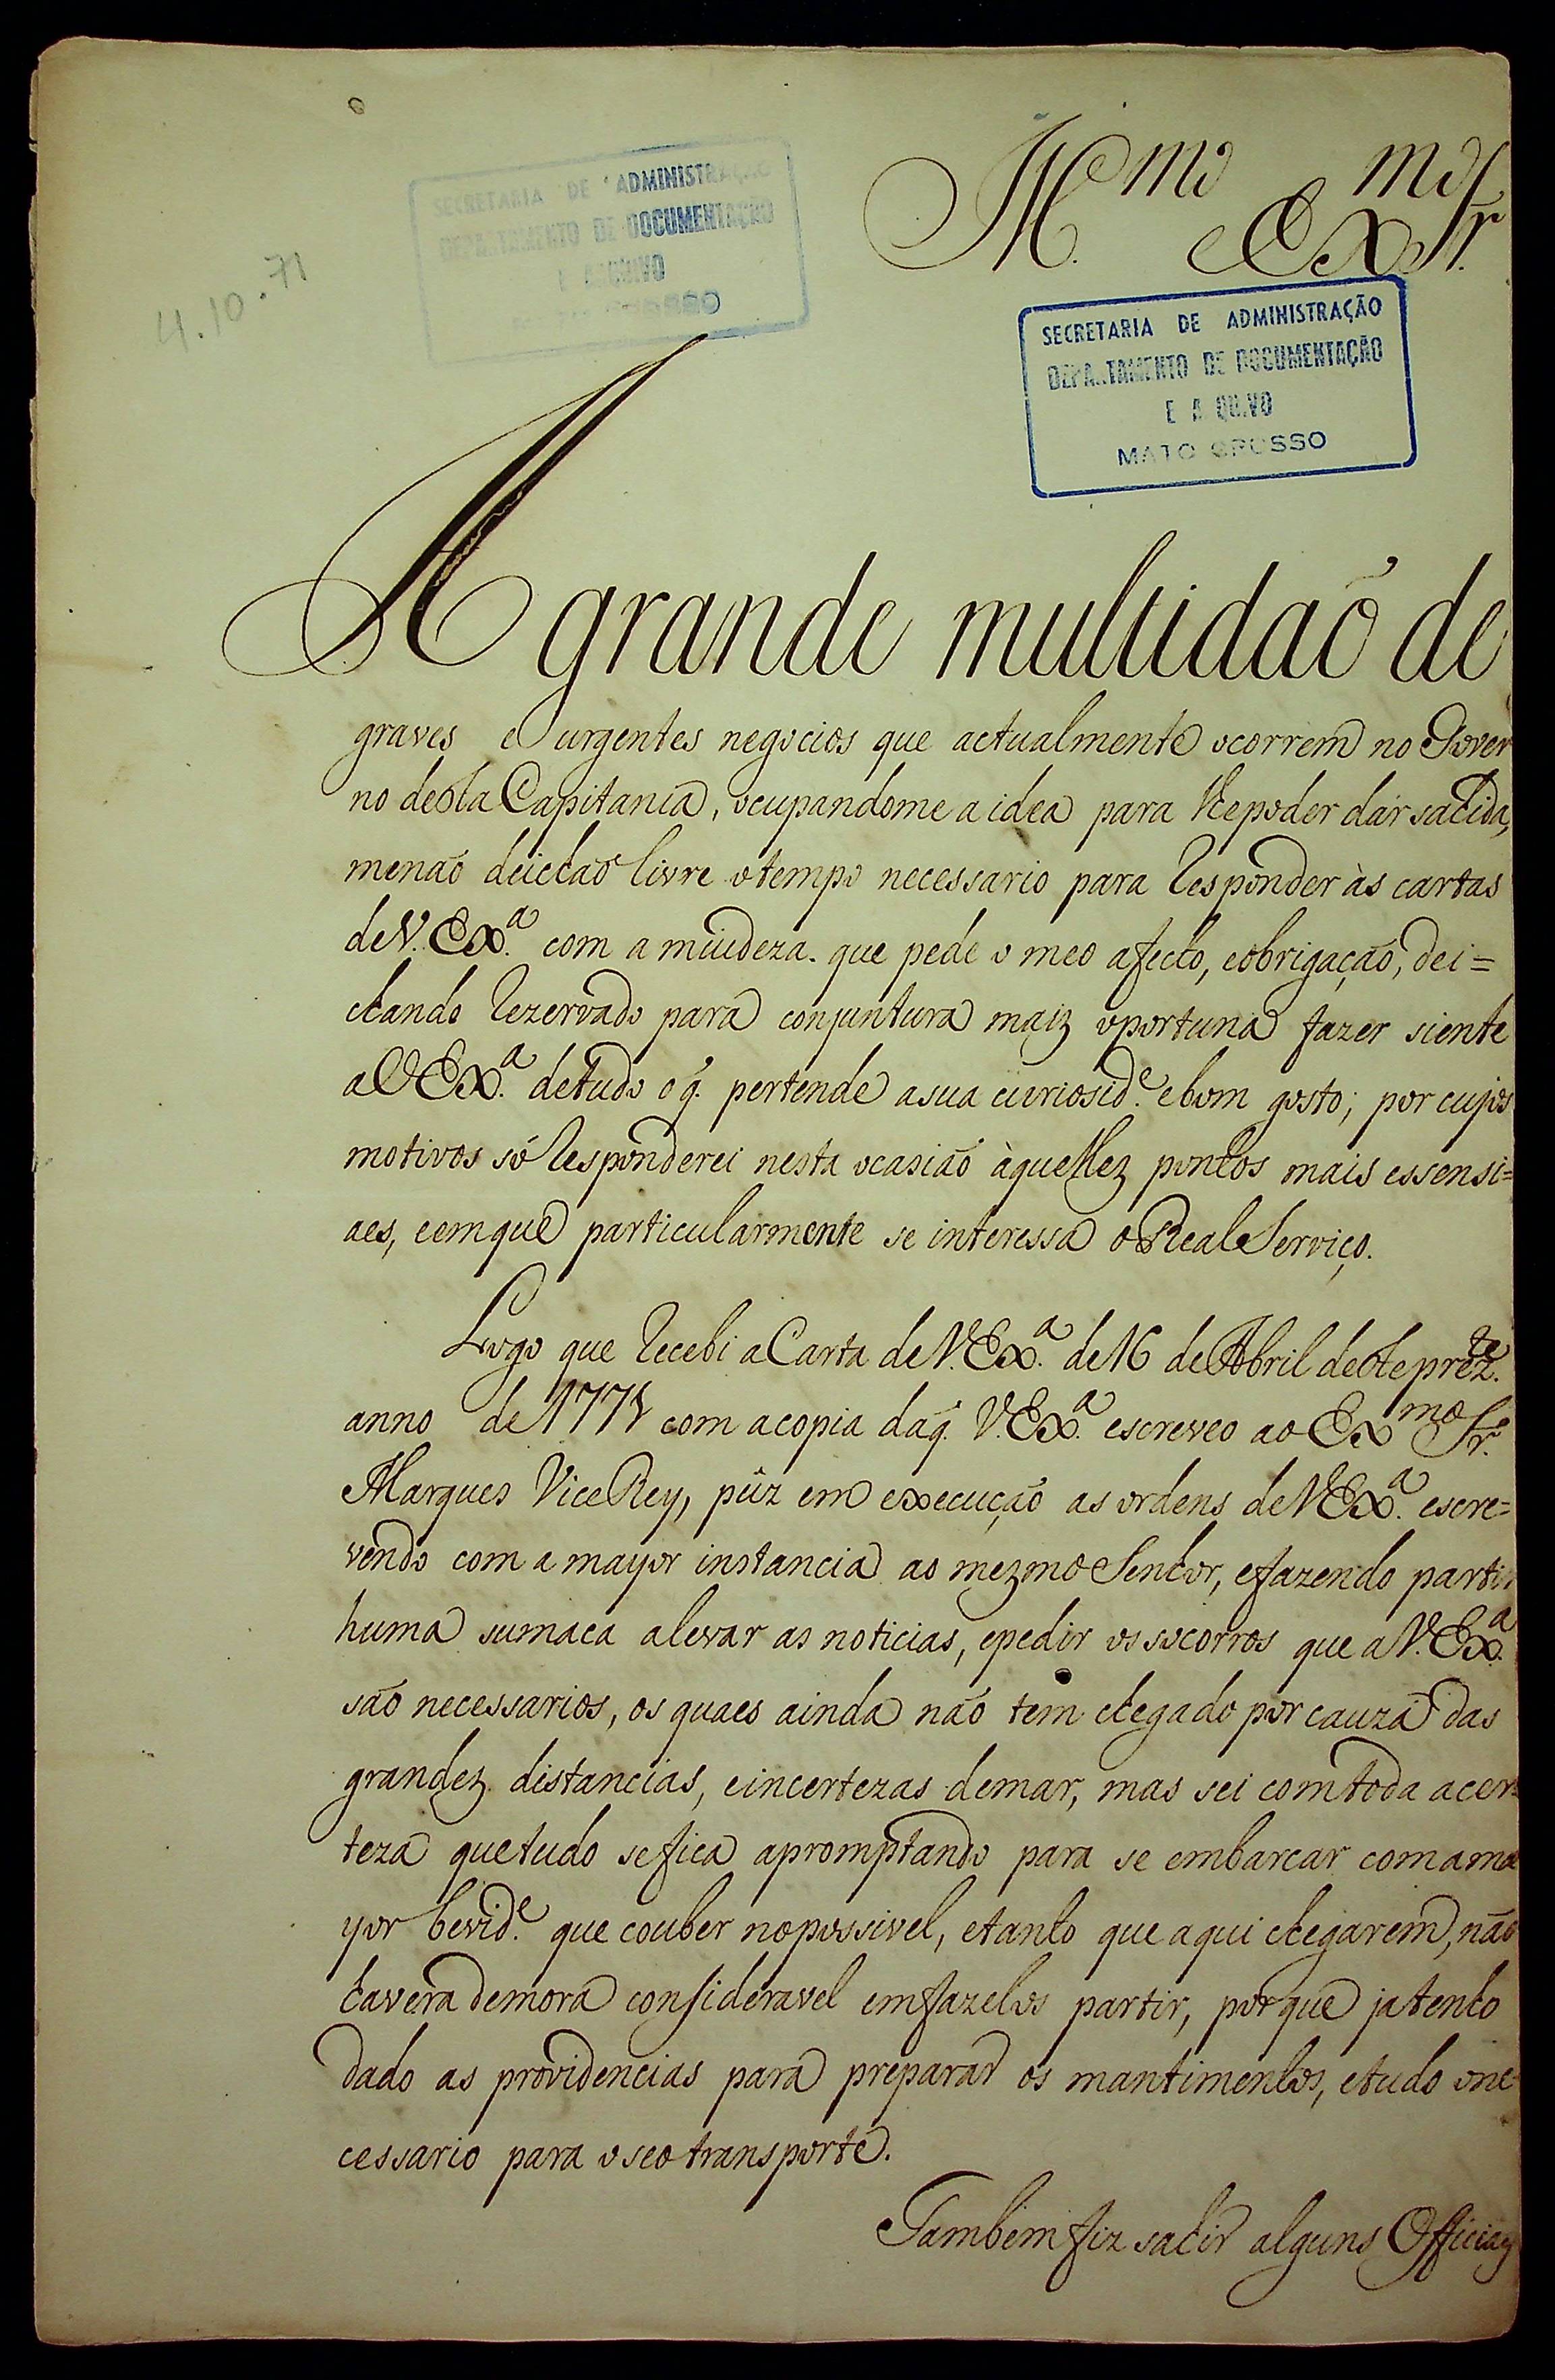 Ill.mo Ex.mo Sr.
4.10.71
SECRETARIA DE ADMINISTRAÇÃO
DEPARTAMENTO DE DOCUMENTAÇÃO
E ARQUIVO
MATO GROSSO
SECRETARIA DE ADMINISTRAÇÃO
DEPARTAMENTO DE DOCUMENTAÇÃO
E ARQUIVO
MATO GROSSO
A grande multidaõ de
graves e urgentes negocios que actualmente ocorrem no Gover
no desta Capitania, ocupandome a idea para lhe poder dar sahida,
menaõ deichaõ livre o tempo necessario para responder às cartas
de V. Ex.ª com a miudeza que pede o meo afecto, eobrigaçaõ, dei=
chando rezervado para conjuntura maiz oportuna fazer siente
a V Ex.ª detudo o q. pertende asua curiosid.e ebom gosto; por cujos
motivos só responderei nesta ocasiaõ àquellez pontos mais essensi=
aes, eemque particularmente se interessa o Real Serviço.
Logo que recebi a Carta de V. Ex.ª de 16 de Abril deste prez.te
anno de 1771 com acopia daq. V. Ex.ª escreveo ao Ex.mo Sr.
Marques Vice Rey, púz em execuçaõ as ordens de V Ex.ª escre=
vendo com a mayor instancia ao mezmo Senhor, efazendo partir
huma sumaca alevar as noticias, epedir os socorros que a V. Ex.ª
saõ necessarios, os quaes ainda naõ tem chegado por cauza das
grandez distancias, eincertezas demar, mas sei comtoda acer=
teza quetudo sefica apromptando para se embarcar comama
yor brevid.e que couber nopossivel, etanto que aqui chegarem, naõ
havera demora consideravel emfazelos partir, porque jatenho
dado as providencias para preparar os mantimentos, etudo one
cessario para oseo transporte.
Tambem fiz sahir alguns Officiaes